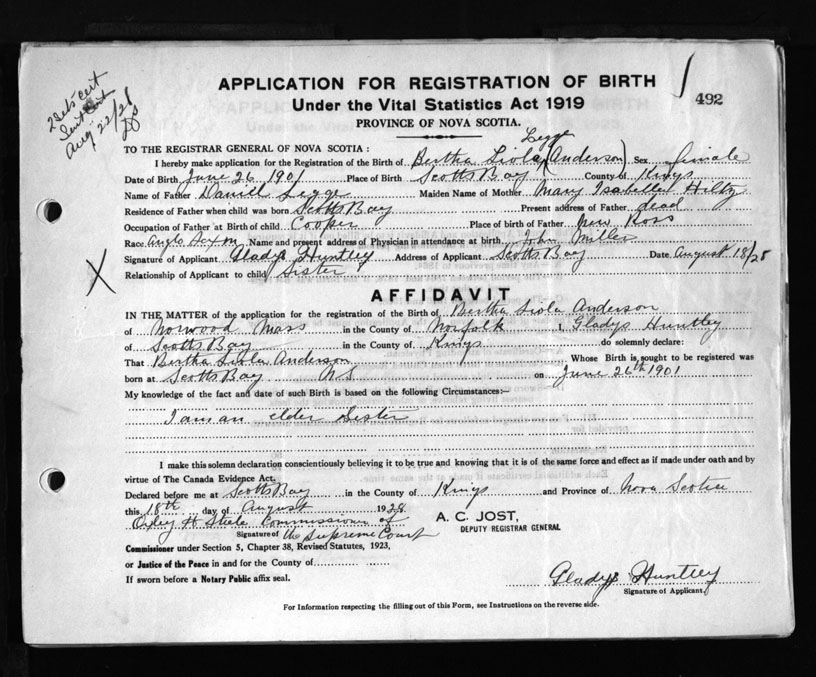 APPLICATION FOR REGISTRATION OF BIRTH
492
Under the Vital Statistics Act 1919
PROVINCE OF NOVA SCOTIA.
Aug 22/28
TO THE REGISTRAR GENERAL OF NOVA SCOTIA:
Legge
I hereby make application for the Registration of the Birth of Bertha Liola (Anderson) Sex female
Date of Birth June 26 1901 Place of Birth Scotts Bay County of Kings
Name of Father Daniel Legge Maiden Name of Mother Mary Isabella Hiltz
Residence of Father when child was born Scotts Bay Present address of Father dead
Occupation of Father at Birth of child Cooper Place of birth of Father New Ross
Race Anglo Saxon Name and present address of Physician in attendance at birth John Miller
Signature of Applicant Gladys Huntley Address of Applicant Scotts Bay Date August 18/28
Relationship of Applicant to child Sister
X
AFFIDAVIT
IN THE MATTER of the application for the registration of the Birth of Bertha Liola Anderson
of Norwood Mass in the County of Norfolk I, Gladys Huntley
of Scotts Bay in the County of Kings do solemnly declare:
That Bertha Liola Anderson Whose Birth is sought to be registered was
born at Scotts Bay N.S. on June 26th 1901
My knowledge of the fact and date of such Birth is based on the following Circumstances:—
I am an elder Sister
I make this solemn declaration conscientiously believing it to be true and knowing that it is of the same force and effect as if made under oath and by
virtue of The Canada Evidence Act.
Declared before me at Scotts Bay in the County of Kings and Province of Nova Scotia
this 18th day of August 1928
A. C. JOST,
DEPUTY REGISTRAR GENERAL
H Steele Commissioner of
Signature of the Supreme Court
Commissioner under Section 5, Chapter 38, Revised Statutes, 1923,
or Justice of the Peace in and for the County of
If sworn before a Notary Public affix seal.
Gladys Huntley
Signature of Applicant
For Information respecting the filling out of this Form, see Instructions on the reverse side.